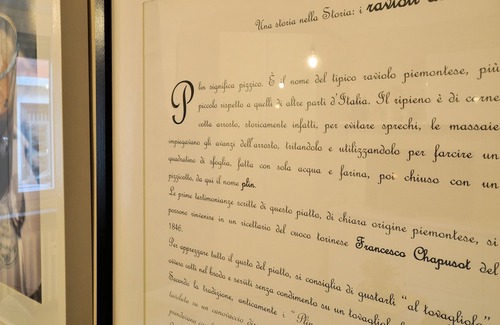 Una storia nella Storia: i ravioli
Plin significa pizzico. È il nome del tipico raviolo piemontese, più
piccolo rispetto a quelli di altre parti d'Italia. Il ripieno è di carne
cotta arrosto, storicamente infatti, per evitare sprechi, le massaie
impiegavano gli avanzi dell'arrosto, tritandolo e utilizzandolo per farcire un
quadratino di sfoglia, fatta con sola acqua e farina, poi chiuso con un
pizzicotto, da qui il nome plin.
Le prime testimonianze scritte di questo piatto, di chiara origine piemontese, si
possono rinvenire in un ricettario del cuoco torinese Francesco Chapusot del
1846.
Per apprezzare tutto il gusto del piatto, si consiglia di gustarli "al tovagliolo"
ovvero cotti nel brodo e serviti senza condimento su un tovagliolo
Secondo la tradizione, anticamente i "Plin
in un canovaccio